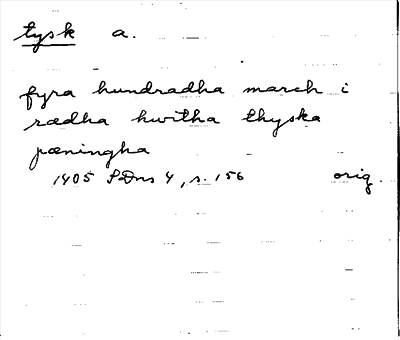 tysk a.
fyra hundradha march i
rædha hwitha thyska
pæningha
1405 SDns 4, s. 156 orig.